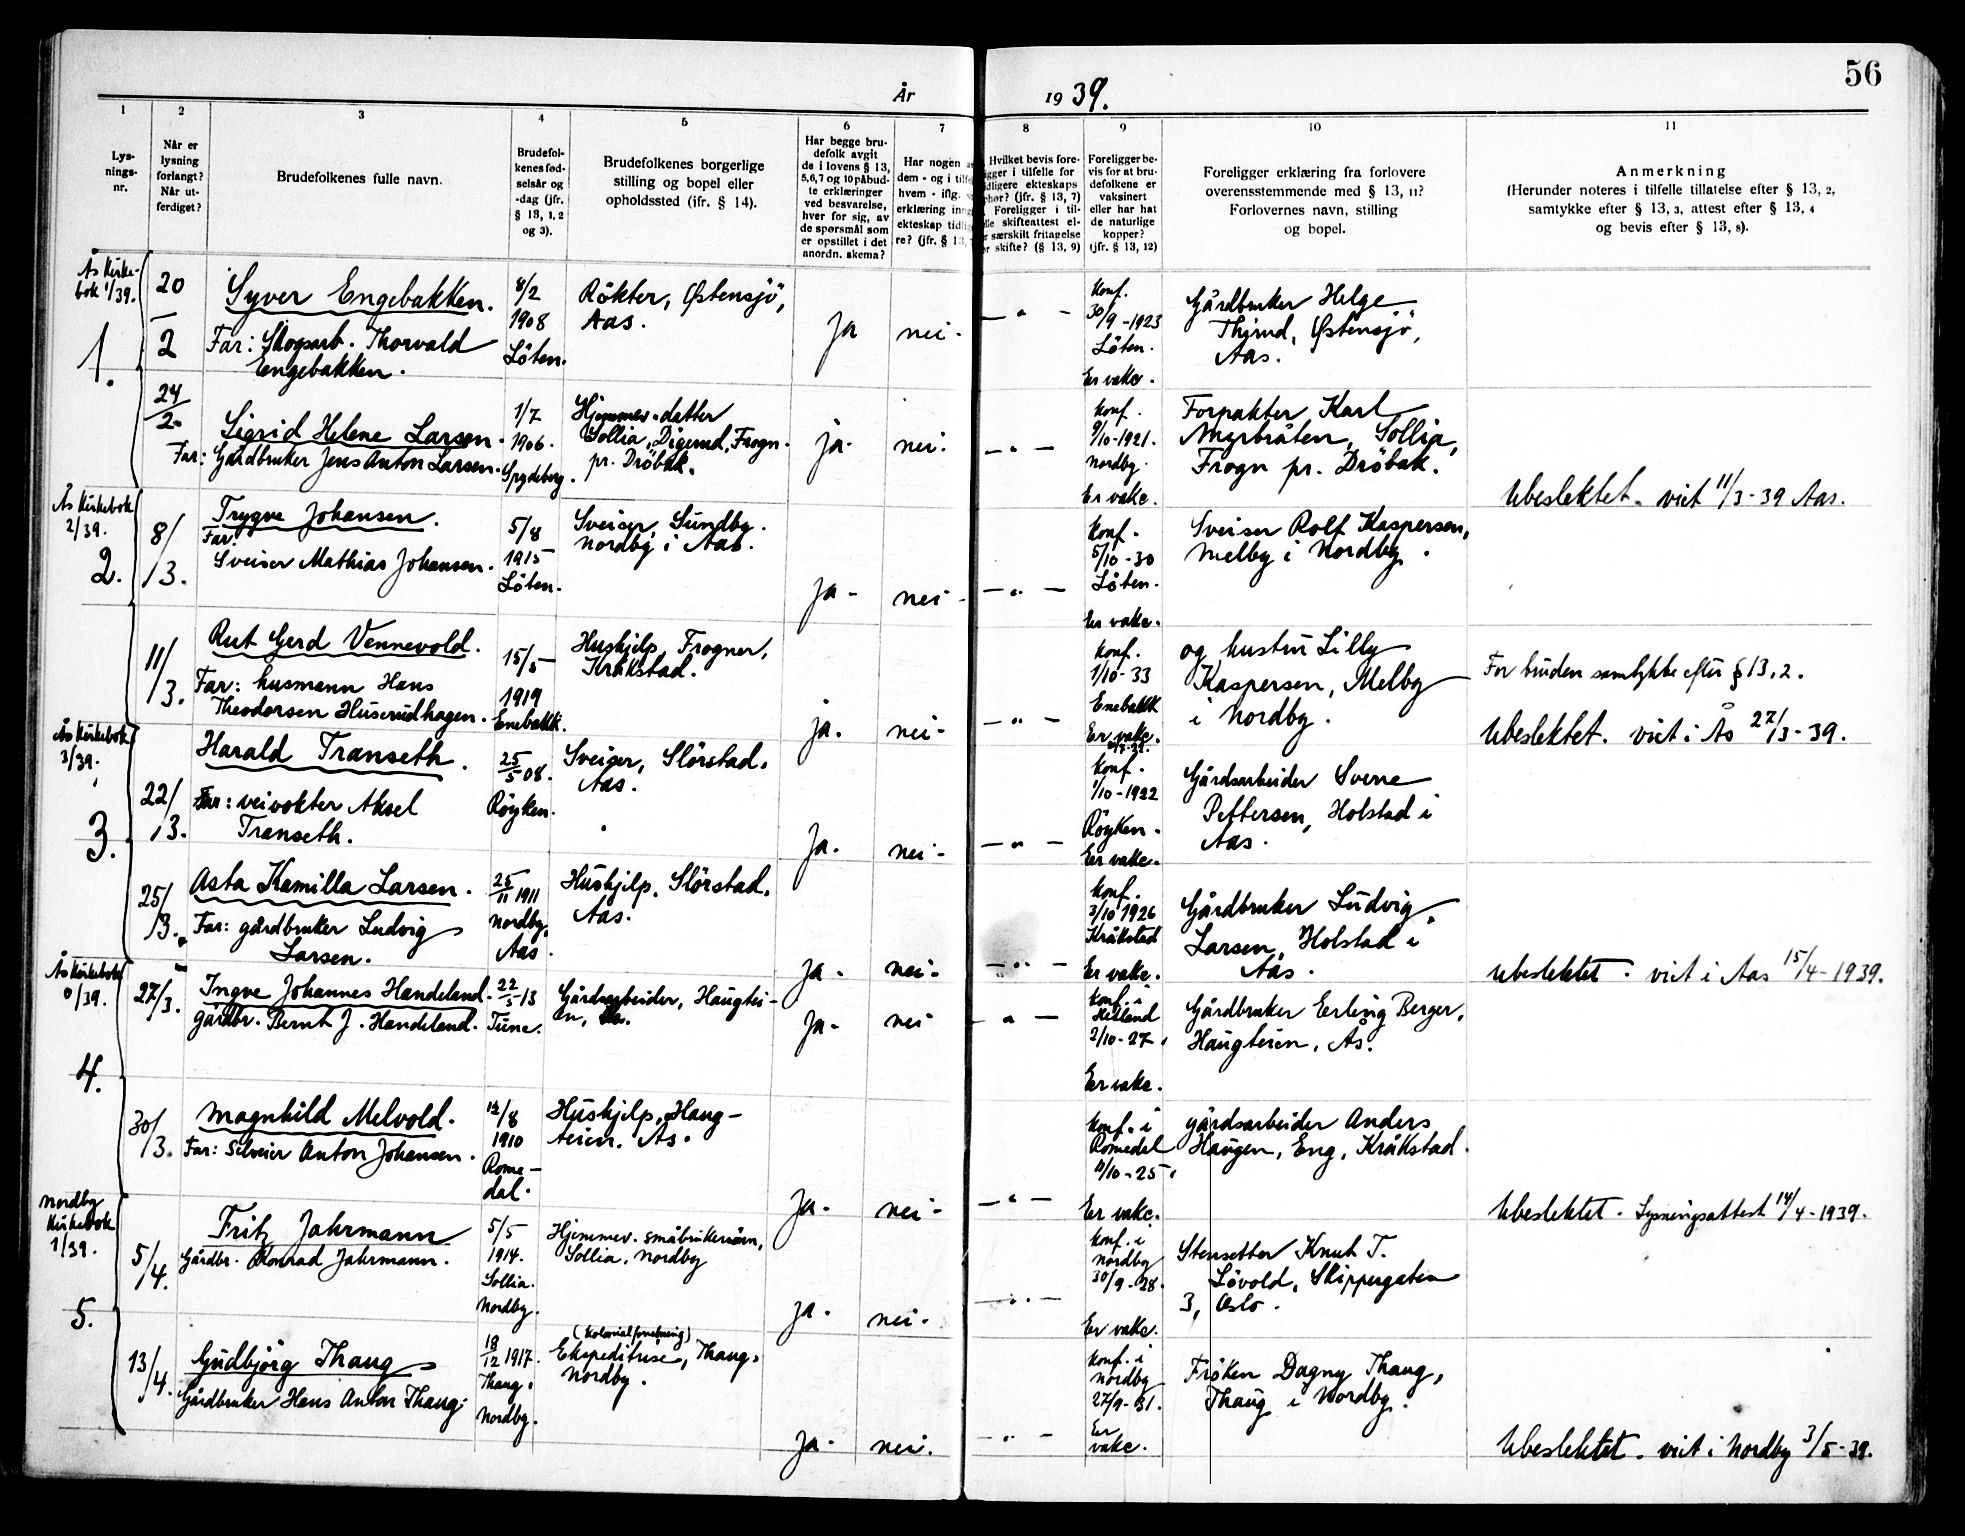 56
År
19 39.
1
2
3
4
5
6
7
8
9
10
11
Lys-
nings-
nr.
Når er
lysning
forlangt?
Når ut-
ferdiget?
Brudefolkenes fulle navn.
Brudefol-
kenes fød-
selsår og
-dag (jfr.
§ 13, 1, 2
og 3).
Brudefolkenes borgerlige
stilling og bopel eller
opholdssted (jfr. § 14).
Har begge bru-
defolk avgit
de i lovens § 13,
5,6,7 og 10 påbud-
te erklæringer
ved besvarelse,
hver for sig, av
de spørsmål som
er opstillet i det
anordn. skema?
Har nogen
dem - og i
hvem - iflg.
erklæring
ekteskap
re? (jfr. § 13,
Hvilket bevis fore-
ligger i tilfelle for
tidligere ekteskaps
ophør? (jfr. § 13, 7)
Foreligger i til-
felle skifteattest el-
ler særskilt fritagelse
for skifte? (§ 13, 9)
Foreligger be-
vis for at bru-
defolkene er
vaksinert
eller har hat
de naturlige
kopper?
(jfr. § 13, 12)
Foreligger erklæring fra forlovere
overensstemmende med § 13, 11?
Forlovernes navn, stilling
og bopel.
Anmerkning
(Herunder noteres i tilfelle tillatelse efter § 13, 2,
samtykke efter § 13, 3, attest efter § 13, 4
og bevis efter § 13, 8).
Ås Kirke-
bok 1/39.
1.
20
2
Syver Engebakken.
Far: Skogsarb. Thorvald
Engebakken.
8/2
1908
Löten.
Rökter, Østensjö,
Aas.
ja
nei.
— " —
Konf.
30/9-1923
Löten.
Er vakc.
Gårdbruker Helge
Thirud, Østensjö,
Aas.
24
2.
Sigrid Helene Larsen.
Far: Gårdbruker Jens Anton Larsen.
1/7
1906.
Spydeberg.
Hjemmev. datter
Sollia, Digerud, Frogn.
pr. Dröbak.
ja.
nei.
— " —
Konf.
9/10-1921.
Nordby.
Er vakc.
Forpakter Karl
Myrbråten, Sollia,
Frogn pr. Dröbak.
Ubeslektet. viet 11/3-39 Aas.
Ås Kirkebok
2/39.
2.
8/
/3.
Trygve Johansen.
Far:
Sveiser Mathias Johansen.
5/8
1915
Löten.
Sveiser, Sundby.
Nordby i Aas.
Ja.
nei
— " —
Konf.
5/10-30
Löten.
Er vakc.
Sveiser Rolf Kaspersen,
Melby i Nordby.
11/
/3.
Rut Gerd Vennevold.
Far: husmann Hans
Theodorsen Huserudhagen.
15/5
1919
Enebakk.
Hushjelp, Frogner,
Kråkstad.
ja.
nei.
— " —
Konf.
1/10-33
Enebakk
Er vakc.
og hustru Lilly
Kaspersen, Melby
i Nordby.
For bruden samtykke efter § 13, 2.
Ubeslektet. viet i Ås 27/3-39.
Ås Kirkebok
3/39.
3.
22/
/3.
Harald Transeth.
Far: veivokter Aksel
Transeth.
25
5 08.
Röyken.
Sveiser, Slörstad.
Aas.
Ja.
nei.
— " —
Konf.
1/10-1922
Röyken.
Er vakc.
Gårdsarbeider Sverre
Pettersen, Holstad i
Aas.
25/
/3.
Asta Kamilla Larsen.
Far: gårdbruker Ludvig
Larsen.
25
11 1911
Nordby,
Aas.
Hushjelp. Slörstad.
Aas.
Ja.
nei.
— " —
Konf.
3/10 1926
Kråkstad
Er vakc.
Gårdbruker Ludvig
Larsen, Holstad i
Aas.
Ubeslektet. viet i Aas 15/4-1939.
Ås Kirkebok
/39.
4.
27/3.
Ingve Johannes Handeland.
gårdbr. Bernt J. Handeland.
22
5 13
Tune.
Gårdsarbeider, Haugtei-
en,
Ja.
nei
— " —
Konf. i
2/10-27,
Er vakc.
Gårdbruker Erling Berger,
Haugteien, Ås.
30/
/3.
Magnhild Melvold.
Far: Anton Johansen.
/8
1910
Rome-
dal.
Hushjelp, Haug-
teien. Ås.
Ja.
nei.
— " —
Konf. i
Romedal
/10-25,
Er vakc.
gårdsarbeider Anders
Haugen, Eng, Kråkstad.
Ubeslektet. Lysningsattest 14/4-1939.
Nordby
Kirkebok
1/39.
5.
5/
/4.
Fritz Jahrmann
Gårdbr. Konrad Jahrmann.
5/5
1914.
Sollia.
Nordby.
Hjemmev. småbrukersönn,
Sollia, Nordby
Ja.
nei.
— " —
Konf. i
Nordby
30/9-28.
Er vakc.
Stensetter Knut T.
Lövold, Skippergaten
3, Oslo.
13/
/4.
Gudbjörg Thaug
Gårdbruker Hans Anton Thaug.
18
12 1917.
Thaug,
Nordby.
(Kolonialforretning)
Ekspeditrise, Thaug,
Nordby.
Ja.
nei.
— " —
Konf. i
Nordby
27/9-31.
Er
vakc.
Fröken Dagny Thaug,
Thaug i Nordby.
Ubeslektet. viet i Nordby 3/5-39.